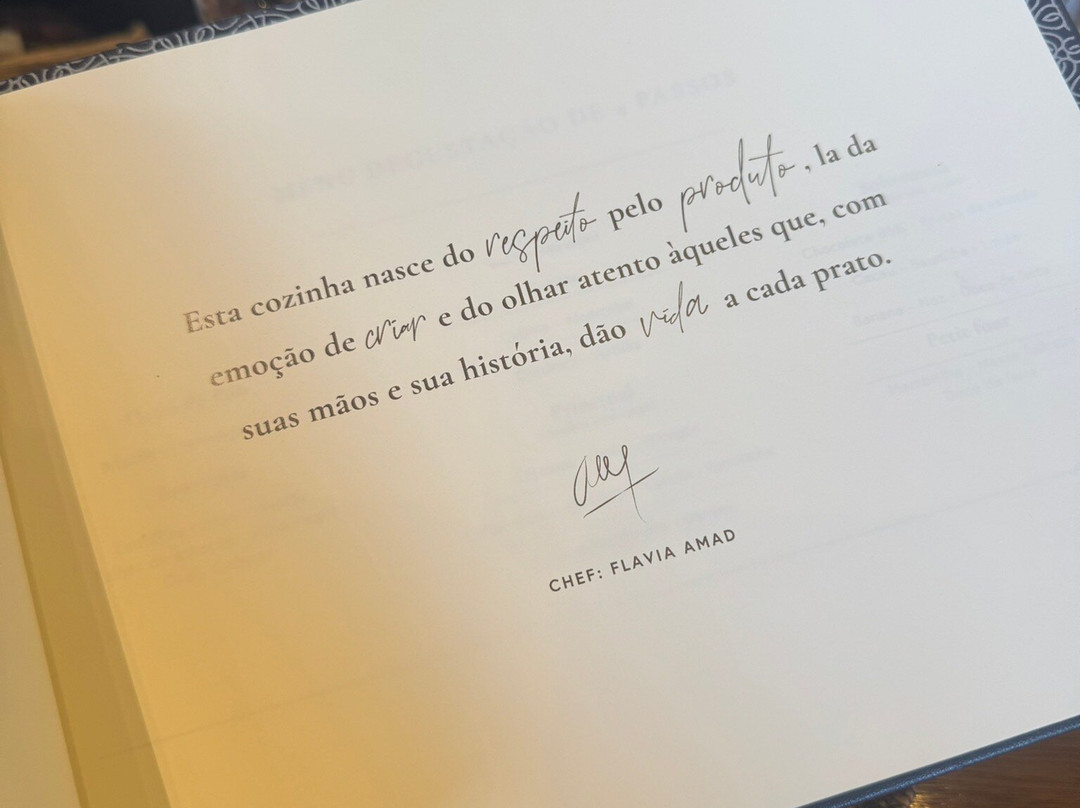 Esta cozinha nasce do respeito pelo produto, la da
emoção de criar e do olhar atento àqueles que, com
suas mãos e sua história, dão vida a cada prato.
CHEF: FLAVIA AMAD